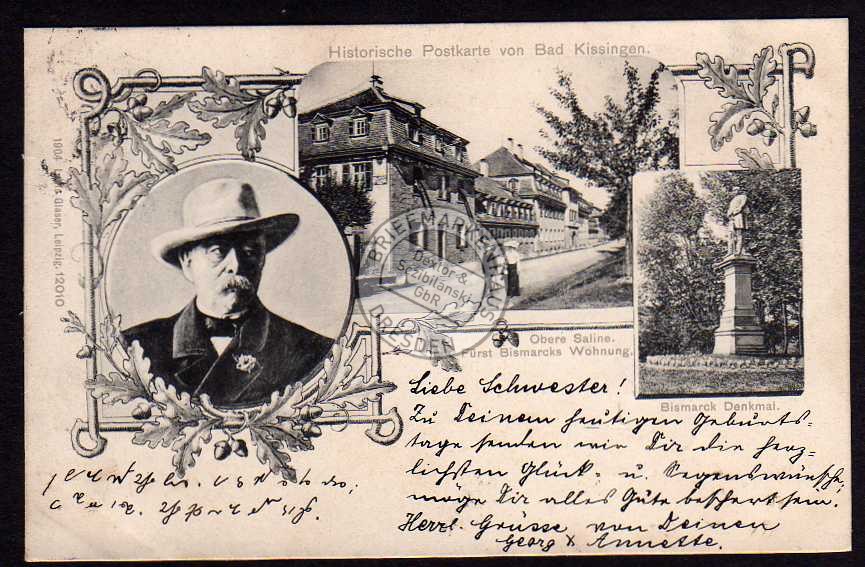 Historische Postkarte von Bad Kissingen.
1904 Glaser, Leipzig. 12010
BRIEFMARKENHAUS
Dextor &
Szibilanski
GbR
DRESDEN
Obere Saline.
Fürst Bismarcks Wohnung.
Bismarck Denkmal.
Liebe Schwester!
Zu Deinem heutigen Geburts-
tage senden wir Dir die herz-
lichsten Glück- u. Segenswünsche,
möge Dir alles Gute beschert sein.
Herzl. Grüsse von Deinen
Georg & Annette.